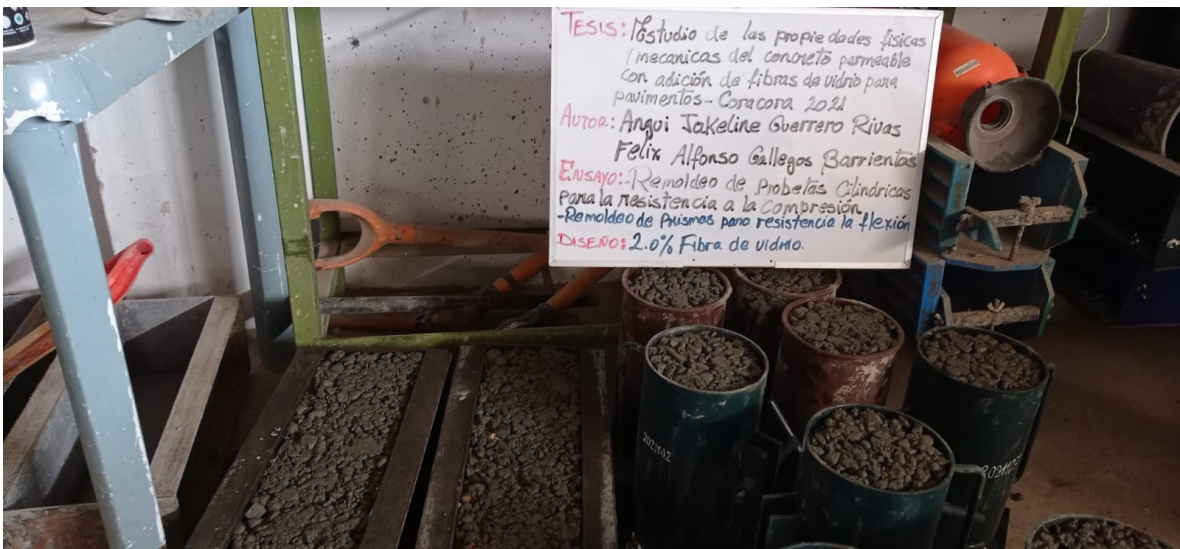 TESIS: Estudio de las propiedades físicas
/mecanicas del concreto permeable
con adición de fibras de vidrio para
pavimentos - Coracora 2021
AUTOR: Angui Jakeline Guerrero Rivas
Felix Alfonso Gallegos Barrientos
ENSAYO: - Remoldeo de Probetas Cilindricas
para la resistencia a la compresión
- Remoldeo de Prismas para resistencia la flexión
DISEÑO: 2.0% Fibra de vidrio.
2021102